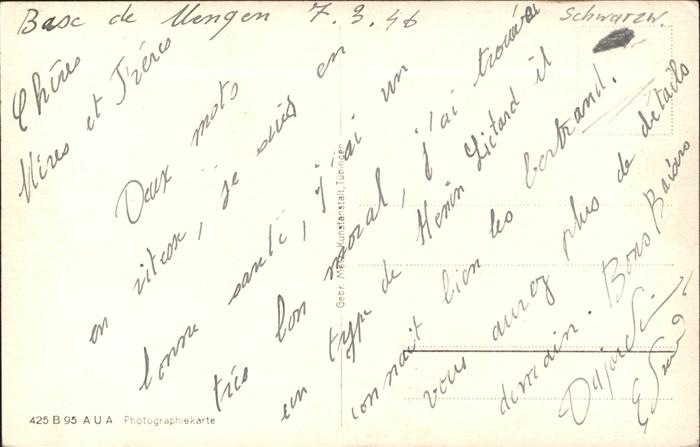 Base de Mengen 7.3.46
Schwarzw.
Chères
Mères et Frères
Deux mots
en vitesse, je suis en
bonne santé, j'ai un
très bon moral, j'ai trouvé
un type de Henin Lietard il
connait bien les bertrand.
vous aurez plus de détails
demain. Bons Baisers
Gebr. Metz, Kunstanstalt, Tübingen
425 B 95 A U A Photographiekarte